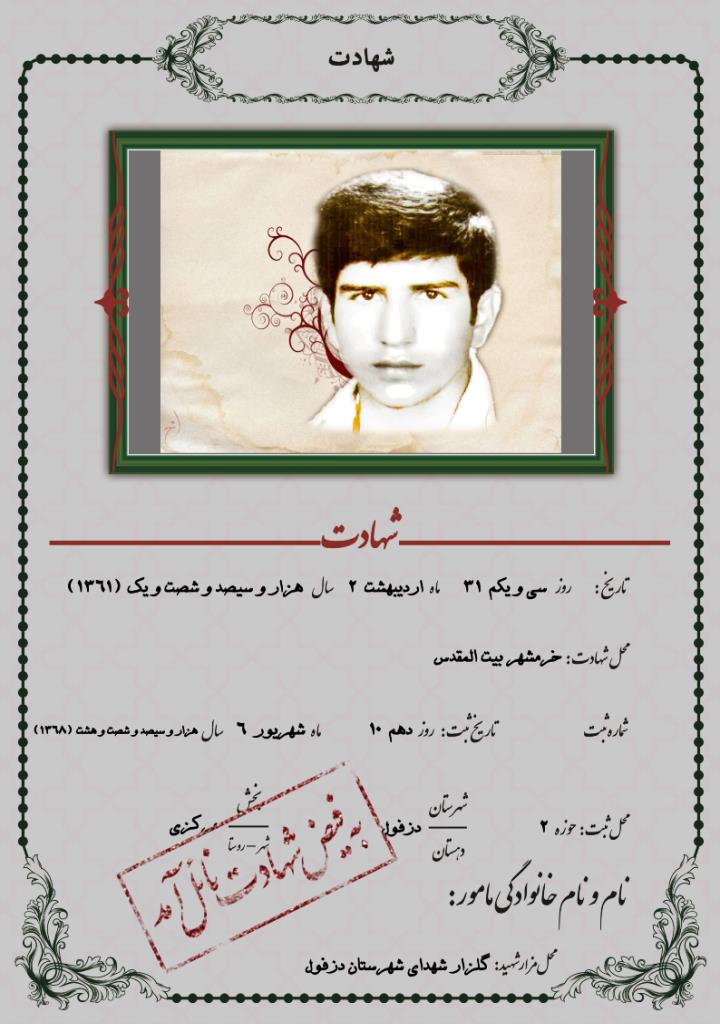 شهادت
شهادت
تاریخ: روز سی و یکم ۳۱ ماه اردیبهشت ۲ سال هزار و سیصد و شصت و یک (۱۳۶۱)
محل شهادت: خرمشهر بیت المقدس
شماره ثبت تاریخ ثبت: روز دهم ۱۰ ماه شهریور ۶ سال هزار و سیصد و شصت و هشت (۱۳۶۸)
محل ثبت: حوزه ۲ شهرستان دهستان دزفول بخش شهر - روستا مرکزی
به فیض شهادت نائل آمد
نام و نام خانوادگی مامور:
محل مزار شهید: گلزار شهدای شهرستان دزفول